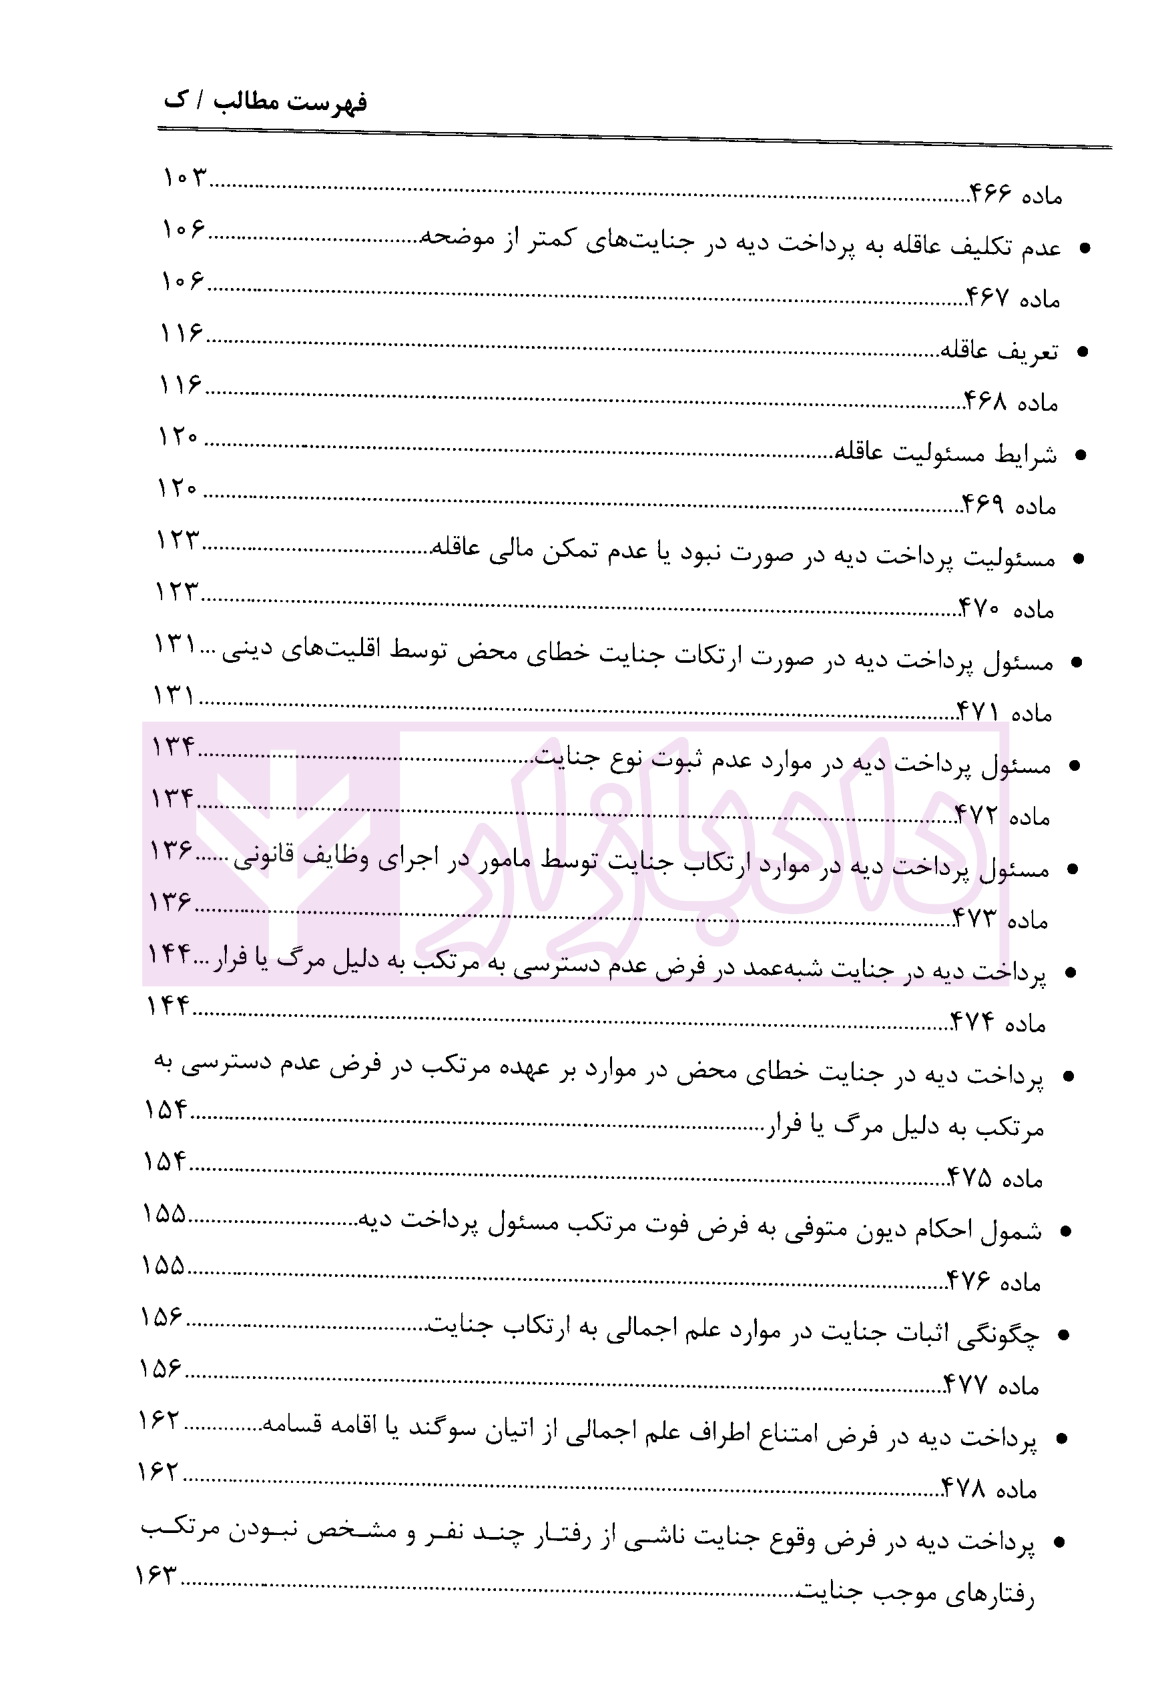 فهرست مطالب / ک
ماده ۴۶۶..........۱۰۳
● عدم تکلیف عاقله به پرداخت دیه در جنایت‌های کمتر از موضحه..........۱۰۶
ماده ۴۶۷..........۱۰۶
● تعریف عاقله..........۱۱۶
ماده ۴۶۸..........۱۱۶
● شرایط مسئولیت عاقله..........۱۲۰
ماده ۴۶۹..........۱۲۰
● مسئولیت پرداخت دیه در صورت نبود یا عدم تمکن مالی عاقله..........۱۲۳
ماده ۴۷۰..........۱۲۳
● مسئول پرداخت دیه در صورت ارتکات جنایت خطای محض توسط اقلیت‌های دینی ...۱۳۱
ماده ۴۷۱..........۱۳۱
● مسئول پرداخت دیه در موارد عدم ثبوت نوع جنایت..........۱۳۴
ماده ۴۷۲..........۱۳۴
● مسئول پرداخت دیه در موارد ارتکاب جنایت توسط مامور در اجرای وظایف قانونی ......۱۳۶
ماده ۴۷۳..........۱۳۶
● پرداخت دیه در جنایت شبه‌عمد در فرض عدم دسترسی به مرتکب به دلیل مرگ یا فرار ...۱۴۴
ماده ۴۷۴..........۱۴۴
● پرداخت دیه در جنایت خطای محض در موارد بر عهده مرتکب در فرض عدم دسترسی به
مرتکب به دلیل مرگ یا فرار..........۱۵۴
ماده ۴۷۵..........۱۵۴
● شمول احکام دیون متوفی به فرض فوت مرتکب مسئول پرداخت دیه..........۱۵۵
ماده ۴۷۶..........۱۵۵
● چگونگی اثبات جنایت در موارد علم اجمالی به ارتکاب جنایت..........۱۵۶
ماده ۴۷۷..........۱۵۶
● پرداخت دیه در فرض امتناع اطراف علم اجمالی از اتیان سوگند یا اقامه قسامه..........۱۶۲
ماده ۴۷۸..........۱۶۲
● پرداخت دیه در فرض وقوع جنایت ناشی از رفتار چند نفر و مشخص نبودن مرتکب
رفتارهای موجب جنایت..........۱۶۳
دادبازار